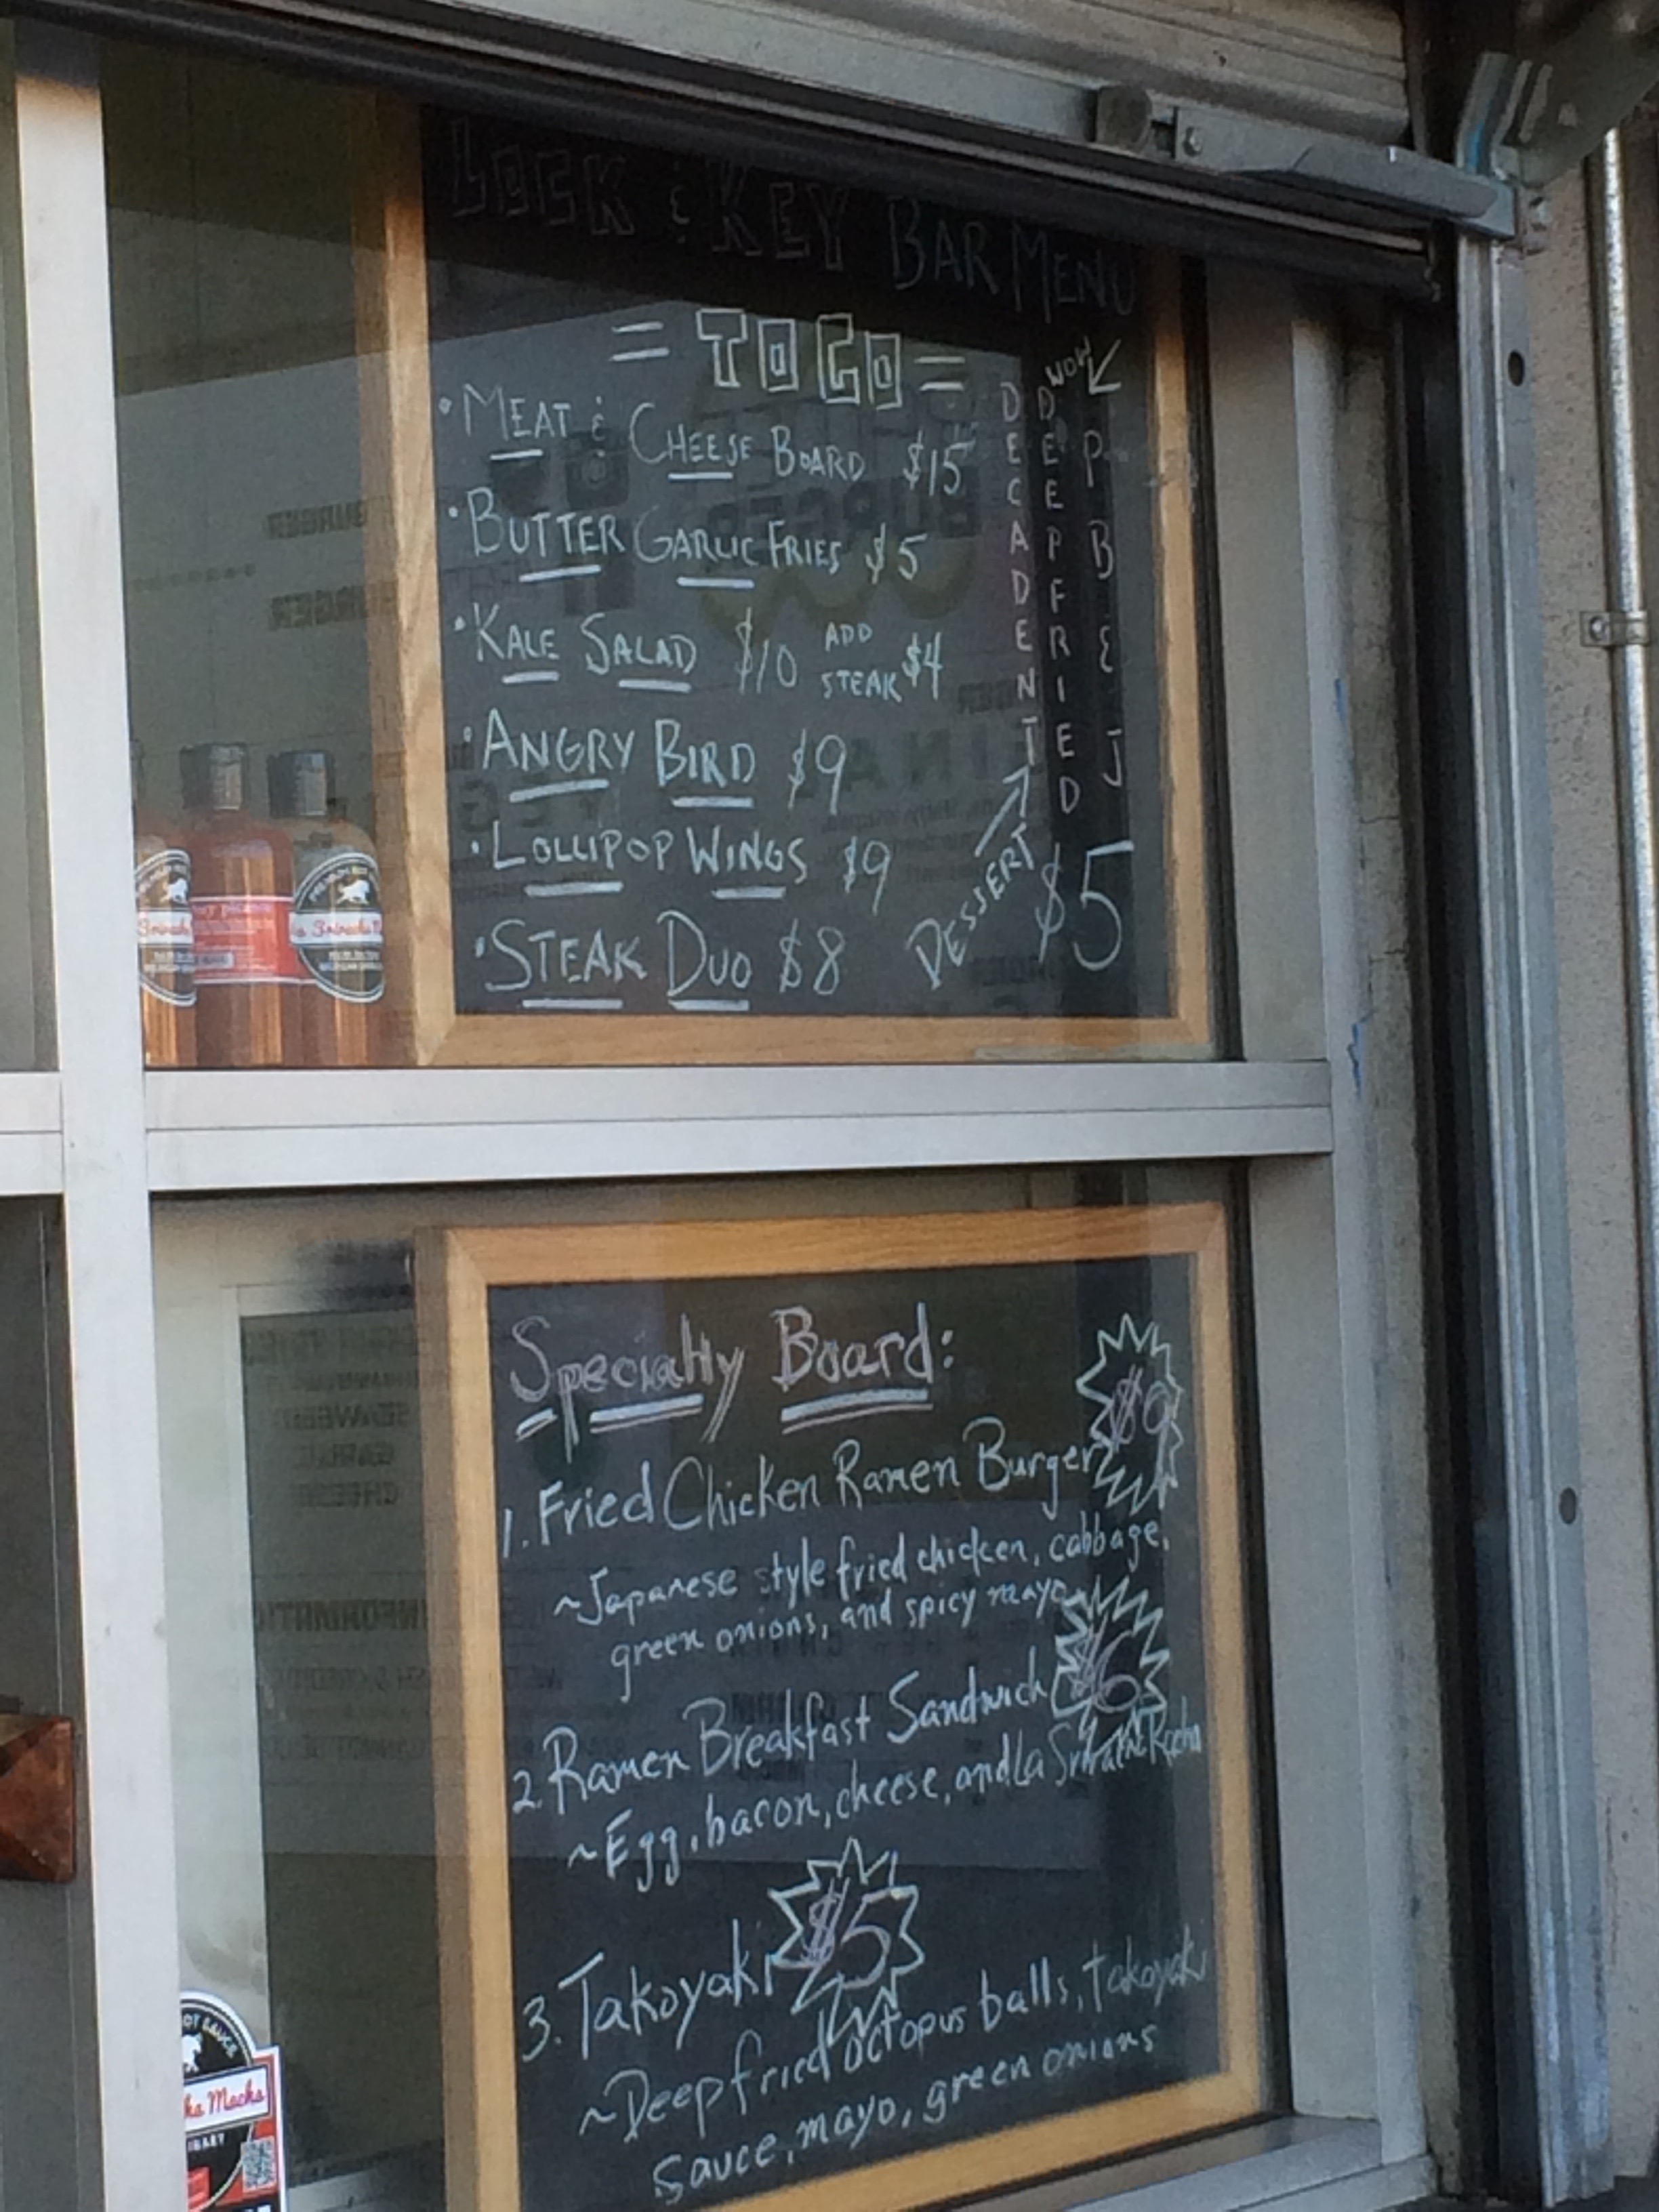 LOCK & KEY BAR MENU
= TO GO =
• MEAT & CHEESE BOARD $15
• BUTTER GARLIC FRIES $5
• KALE SALAD $10 ADD STEAK $4
• ANGRY BIRD $9
• LOLLIPOP WINGS $9
• STEAK DUO $8
WOW
DECADENT
DEEP FRIED
PB & J
DESSERT
$5
Specialty Board:
1. Fried Chicken Ramen Burger $9
~Japanese style fried chicken, cabbage,
green onions, and spicy mayo
2. Ramen Breakfast Sandwich $6
~Egg, bacon, cheese, and La
3. Takoyaki $5
~Deep fried octopus balls, takoyaki
sauce, mayo, green onions